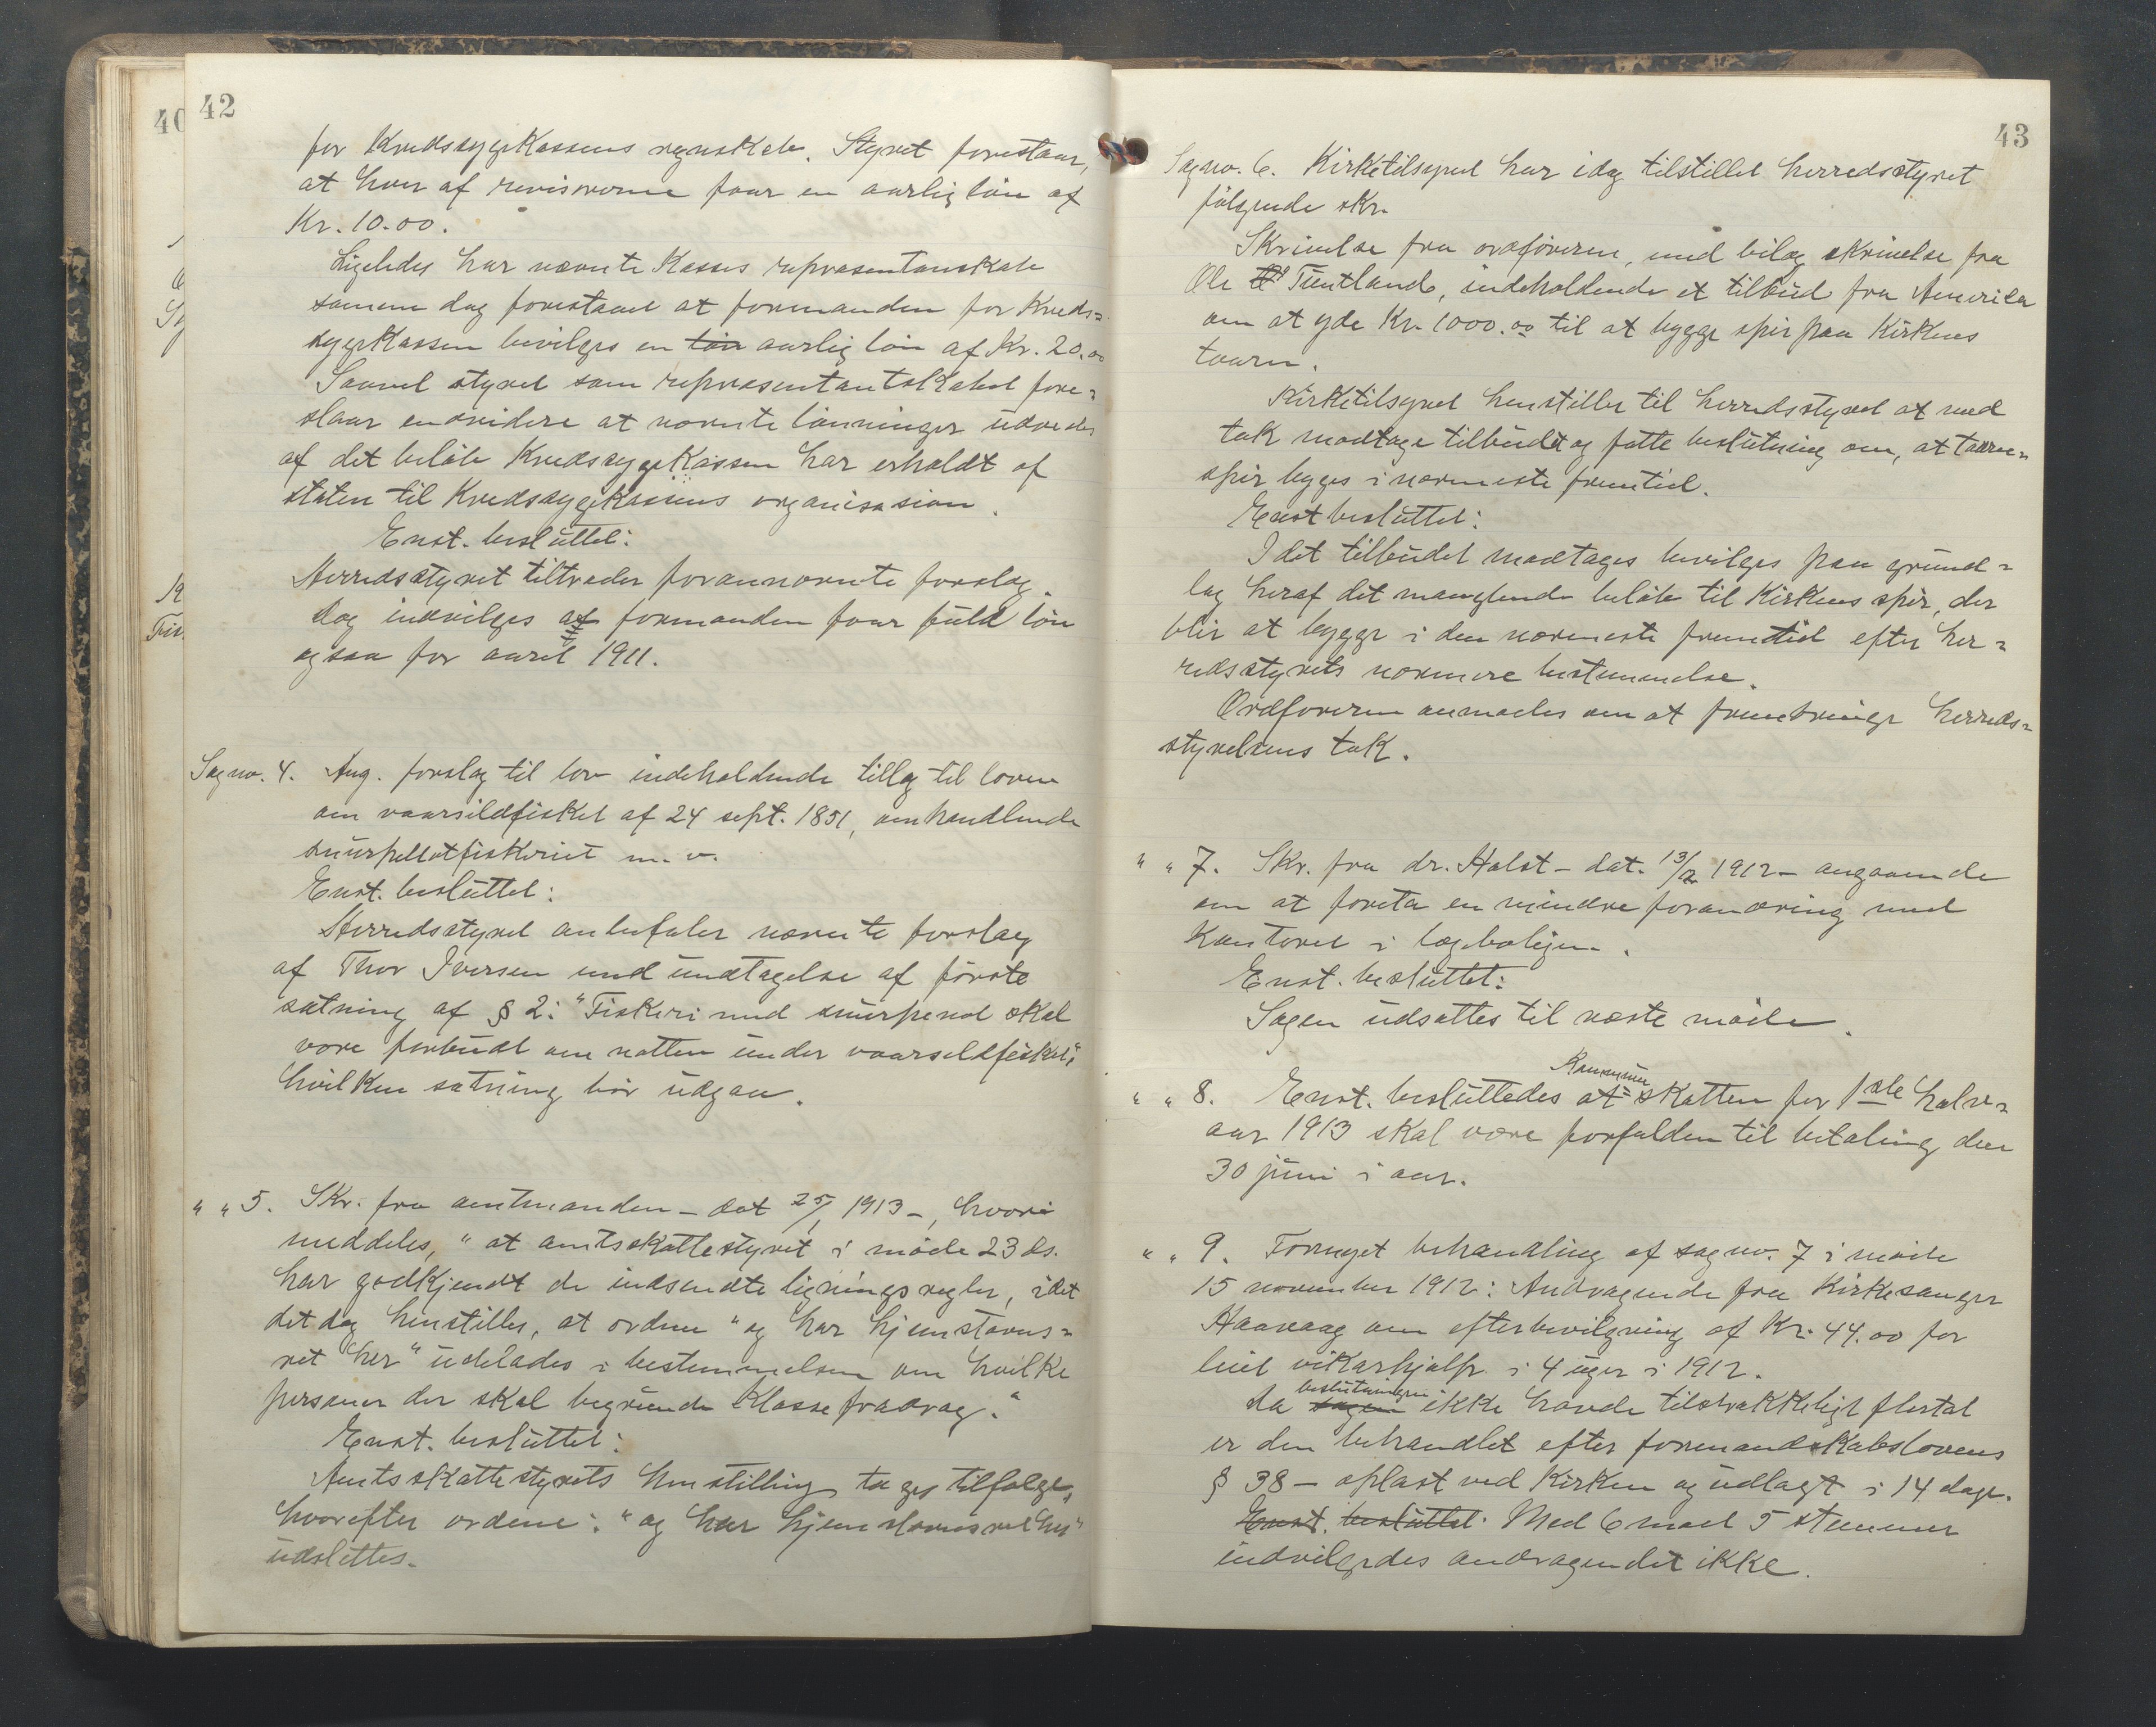 42
for Kredssygekassens regnskab. Styret forestaar,
at hver af revisorerne faar en aarlig løn af
Kr. 10.00.
Ligeledes har nævnte Kasses repræsentanskab
samme dag forestaaet at formanden for Kreds=
sygekassen bevilges en løn aarlig løn af Kr. 20.00
Saavel styret som repræsentantskabet fore=
slaar endvidere at nævnte lønninger udredes
af det beløb Kredssygekassen har erholdt af
staten til Kredssygekassens organisasion.
Enst. besluttet:
Herredsstyret tiltræder forannævnte forslag.
Dog indvilges at formanden faar fuld løn
ogsaa for aaret 1911.
Sag no. 4. Ang. forslag til lov indeholdende tillæg til loven
om vaarsildfisket af 24 sept. 1851, omhandlende
snurpenotfiskeriet m. v.
Enst. besluttet:
Herredsstyret anbefaler nævnte forslag
af Thor Iversen med undtagelse af første
sætning af § 2: "Fiskeri med snurpenot skal
være forbudt om natten under vaarsildfisket",
hvilken sætning bør udgaa.
" " 5. Skr. fra amtmanden – dat 25/1 1913 –, hvori
meddeles, "at amtsskattestyret i møde 23 ds.
har godkjendt de indsendte ligningsregler, idet
det dog henstilles, at ordene "og har hjemstavns=
ret her" udelades i bestemmelsen om hvilke
personer der skal begrunde Klassefradrag."
Enst. besluttet:
Amtsskattestyrets henstilling tages tilfølge,
hvorefter ordene: "og har hjemstavnsret her"
udslettes.
43
Sag no. 6. Kirketilsynet har idag tilstillet herredsstyret
følgende skr.
Skrivelse fra ordføreren, med bilag skrivelse fra
Ole Tuntland, indeholdende et tilbud fra Amerika
om at yde Kr. 1000.00 til at bygge spir paa Kirkens
taarn.
Kirketilsynet henstiller til herredsstyret at med
tak modtage tilbudet og fatte beslutning om, at taarn=
spir bygges i nærmeste fremtid.
Enst besluttet:
I det tilbudet modtages bevilges paa grund=
lag heraf det manglende beløb til Kirkens spir, der
blir at bygge i den nærmeste fremtid efter her=
redsstyrets nærmere bestemmelse.
Ordføreren anmodes om at frembringe herreds=
styrelsens tak.
" " 7. Skr. fra dr. Holst – dat. 13/2 1912 – angaaende
om at foreta en mindre forandring med
Kontoret i lægeboligen.
Enst. besluttet:
Sagen udsættes til næste møde.
Kommune
" " 8. Enst. besluttedes at = skatten for 1ste halv=
aar 1913 skal være forfalden til betaling den
30 juni i aar.
" " 9. Fornyet behandling af sag no. 7 i møde
15 november 1912: Andragende fra Kirkesanger
Haavaag om efterbevilgning af Kr. 44.00 for
leiet vikarhjælp i 4 uger i 1912.
beslutningen
Da sagen ikke havde tilstrækkeligt flertal
er den behandlet efter formandskabslovens
§ 38 – oplæst ved Kirken og udlagt i 14 dage.
Enst. besluttet. Med 6 mod 5 stemmer
indvilgedes andragendet ikke.